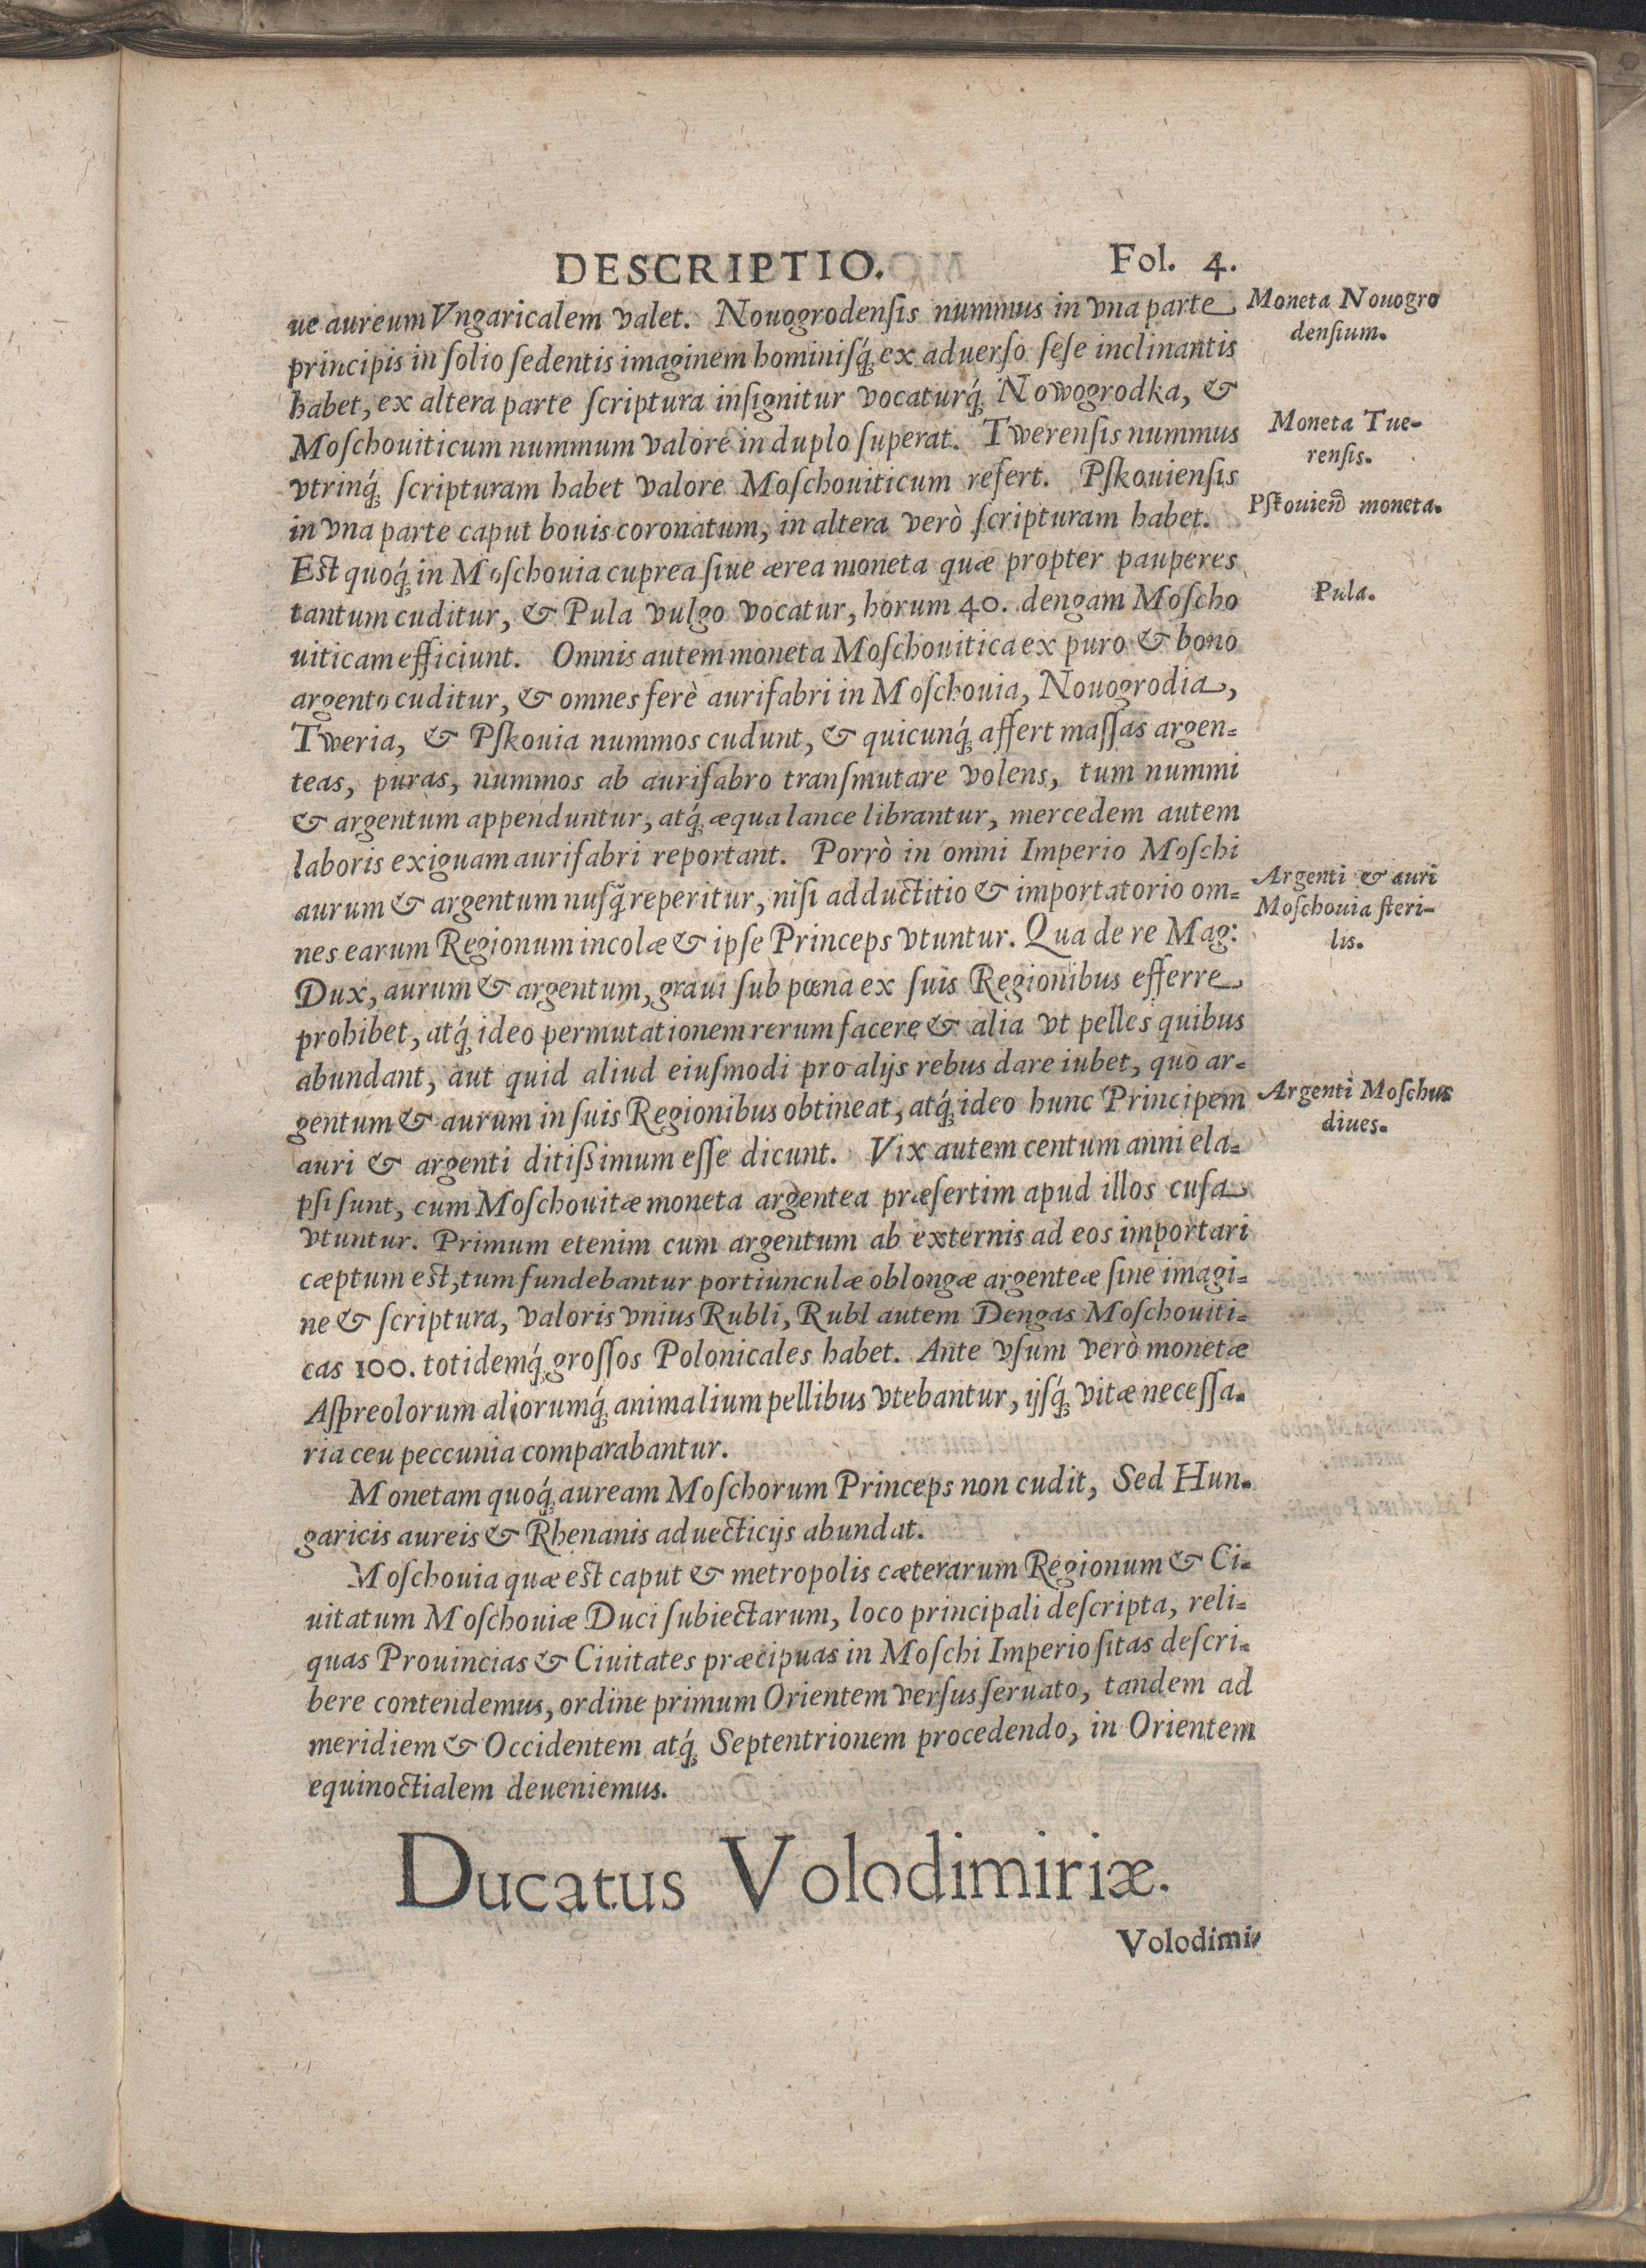 DESCRIPTIO. Fol. 4.
ue aureum Vngaricalem valet. Nouogrodenſis nummus in vna parte
Moneta Nouogro
denſium.
principis in ſolio ſedentis imaginem hominiſq́; ex aduerſo ſeſe inclinantis
habet, ex altera parte ſcriptura inſignitur vocaturq́; Nowogrodka, &
Moſchouiticum nummum valore in duplo ſuperat. Twerenſis nummus
Moneta Tue-
renſis.
vtrinq́; ſcripturam habet valore Moſchouiticum refert. Pſkouienſis
in vna parte caput bouis coronatum, in altera verò ſcripturam habet.
Pſkouieñ moneta.
Eſt quoq́; in Moſchouia cuprea ſiue ærea moneta quæ propter pauperes
tantum cuditur, & Pula vulgo vocatur, horum 40. dengam Moſcho
Pula.
uiticam efficiunt. Omnis autem moneta Moſchouitica ex puro & bono
argento cuditur, & omnes ferè aurifabri in Moſchouia, Nouogrodia,
Tweria, & Pſkouia nummos cudunt, & quicunq́; affert maſſas argen-
teas, puras, nummos ab aurifabro tranſmutare volens, tum nummi
& argentum appenduntur, atq́; æqua lance librantur, mercedem autem
laboris exiguam aurifabri reportant. Porrò in omni Imperio Moſchi
aurum & argentum nuſq̃ reperitur, niſi adductitio & importatorio om-
Argenti & auri
Moſchouia ſteri-
lis.
nes earum Regionum incolæ & ipſe Princeps vtuntur. Qua de re Mag:
Dux, aurum & argentum, graui ſub pœna ex ſuis Regionibus efferre
prohibet, atq́; ideo permutationem rerum facere & alia vt pelles quibus
abundant, aut quid aliud eiuſmodi pro alijs rebus dare iubet, quò ar-
gentum & aurum in ſuis Regionibus obtineat, atq́; ideo hunc Principem
Argenti Moſchus
diues.
auri & argenti ditiſsimum eſſe dicunt. Vix autem centum anni ela-
pſi ſunt, cum Moſchouitæ moneta argentea præſertim apud illos cuſa
vtuntur. Primum etenim cum argentum ab externis ad eos importari
cæptum eſt, tum fundebantur portiunculæ oblongæ argenteæ ſine imagi-
ne & ſcriptura, valoris vnius Rubli, Rubl autem Dengas Moſchouiti-
cas 100. totidemq́; groſſos Polonicales habet. Ante vſum verò monetæ
Aſpreolorum aliorumq́; animalium pellibus vtebantur, ijſq́; vitæ neceſſa-
ria ceu peccunia comparabantur.
Monetam quoq́; auream Moſchorum Princeps non cudit, Sed Hun-
garicis aureis & Rhenanis aduecticijs abundat.
Moſchouia quæ eſt caput & metropolis cæterarum Regionum & Ci-
uitatum Moſchouiæ Duci ſubiectarum, loco principali deſcripta, reli-
quas Prouincias & Ciuitates præcipuas in Moſchi Imperio ſitas deſcri-
bere contendemus, ordine primum Orientem verſus ſeruato, tandem ad
meridiem & Occidentem atq́; Septentrionem procedendo, in Orientem
equinoctialem deueniemus.
Ducatus Volodimiriæ.
Volodimi-